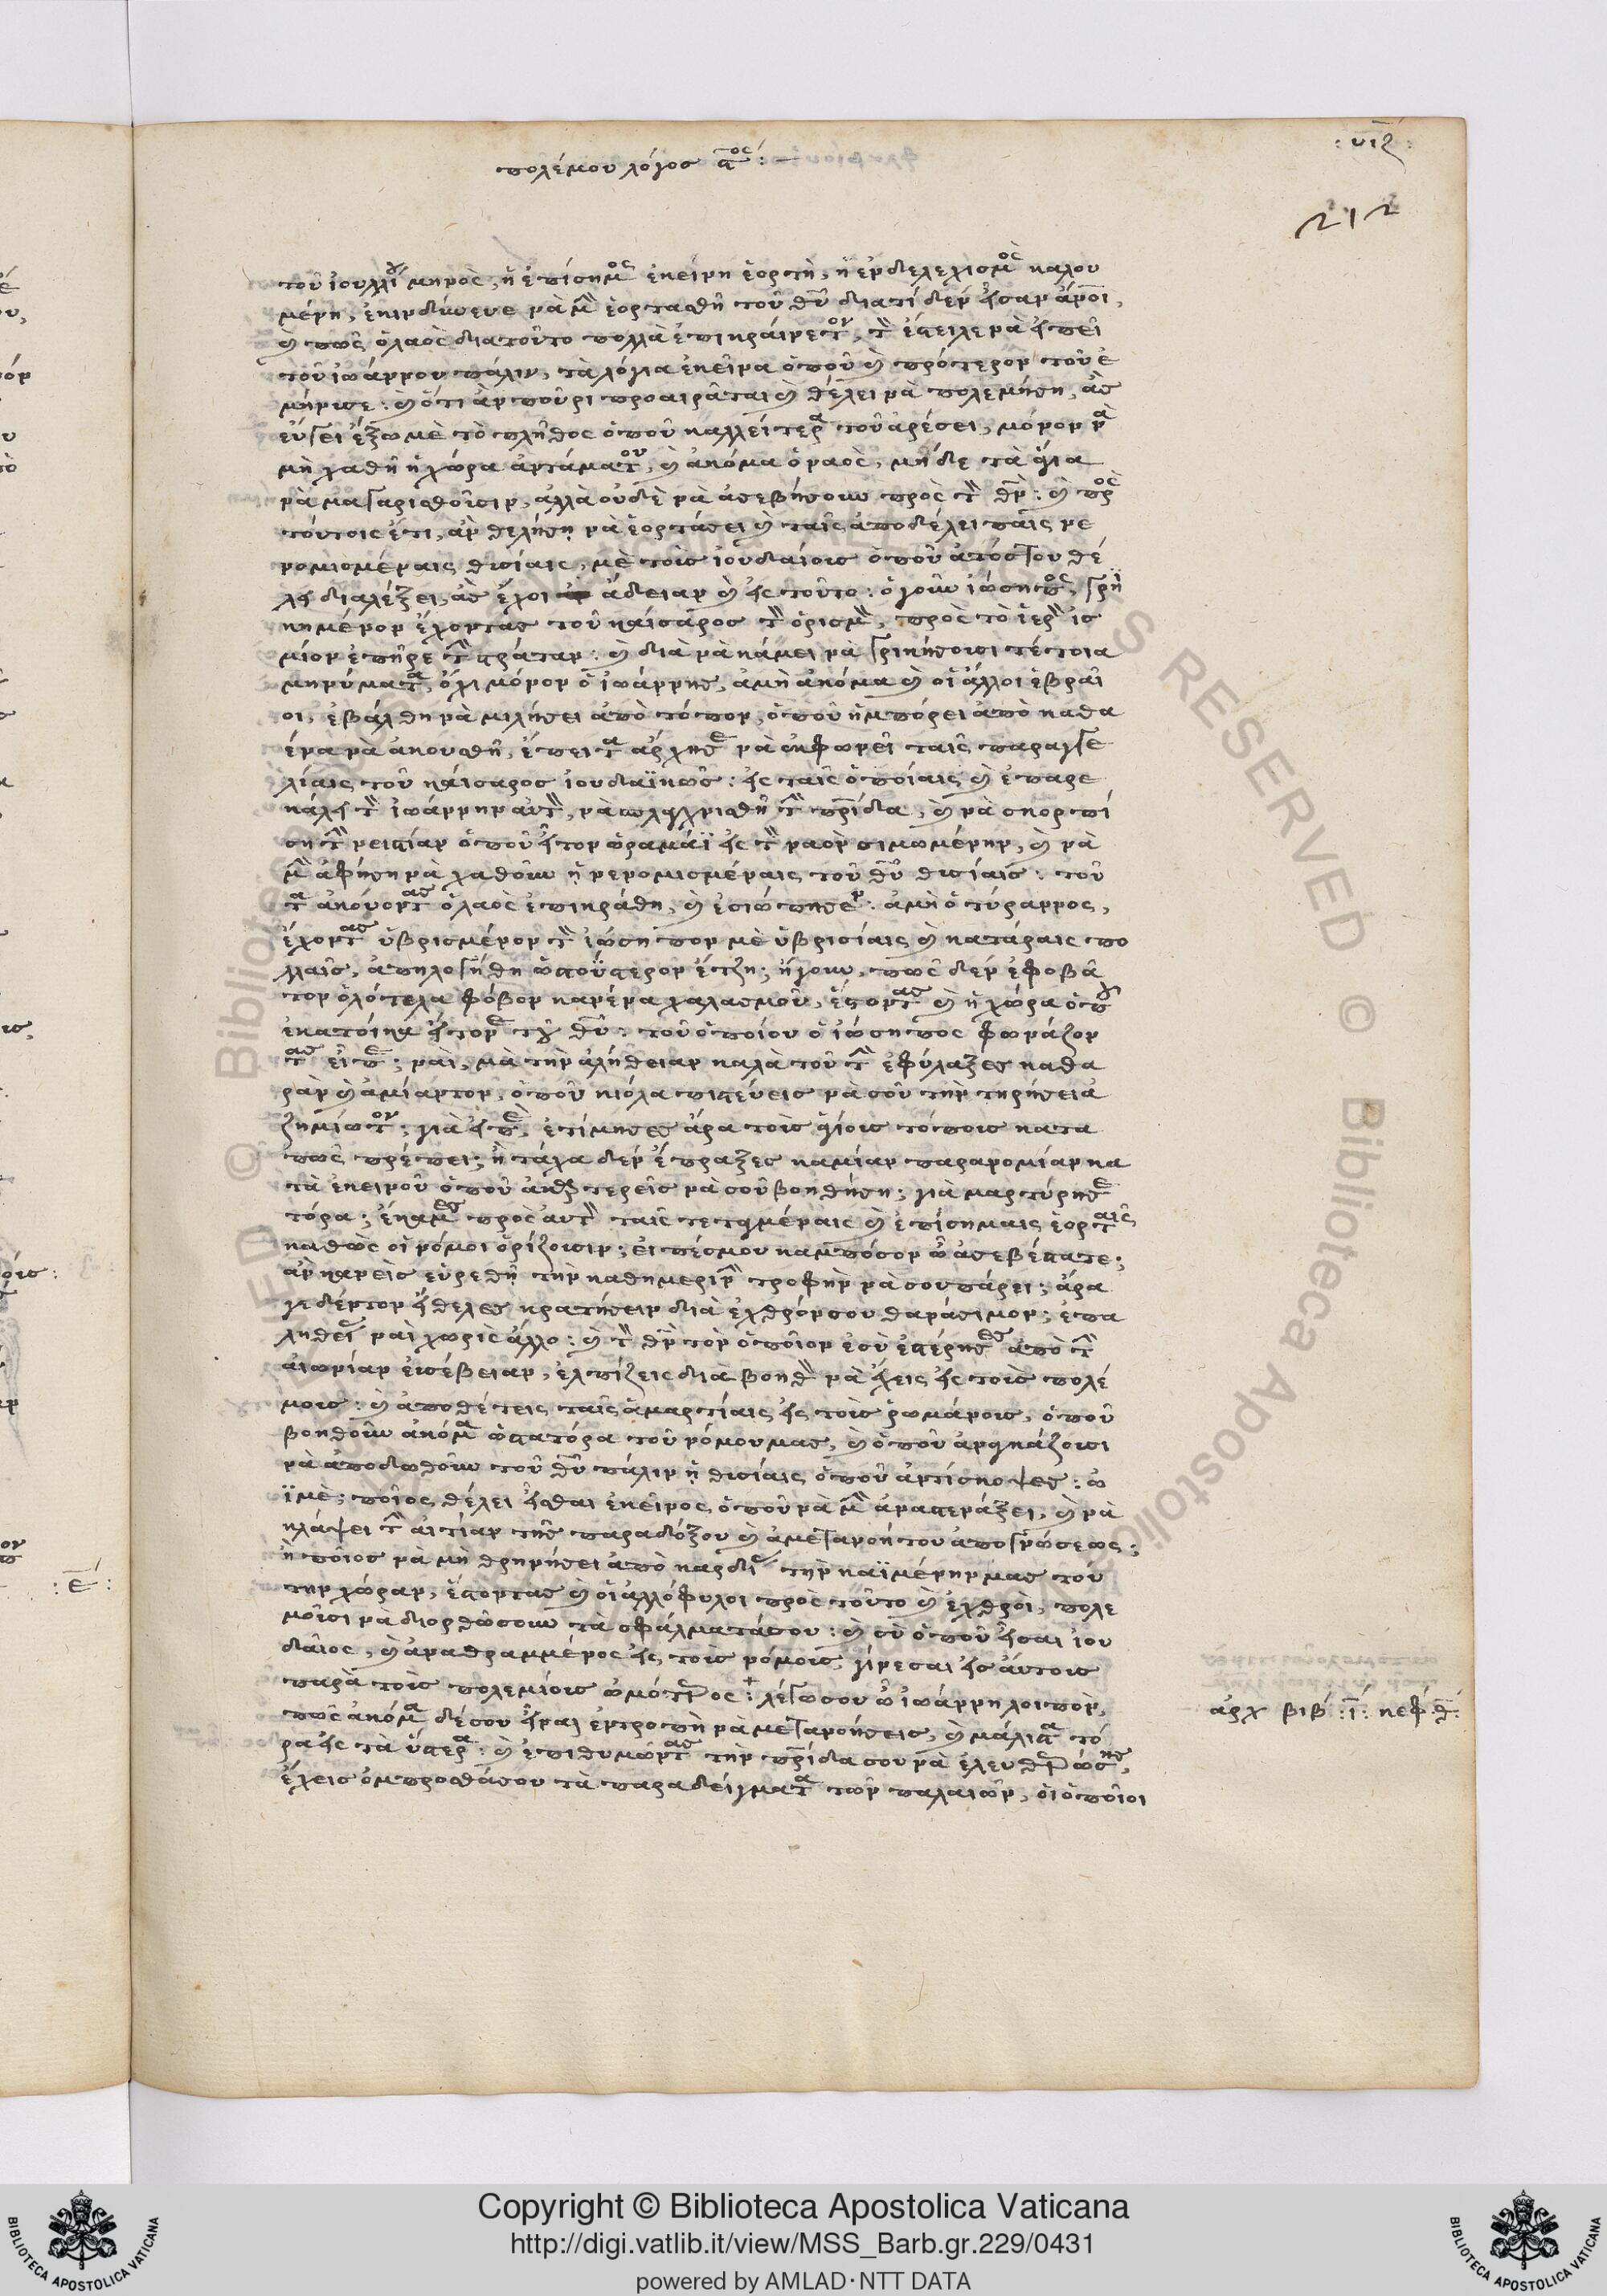 πολέμου λόγος α^ος :—
: υιζ :
212
τοῦ ἰουλλίου μηνὸς, ἡ ἐπίσημος ἐκείνη ἑορτὴ, ἡ ἐνδελεχισμὸς καλου
μένη, ἐκινδύνευε νὰ μὴ ἑορτασθῆ τοῦ θῦ διατὶ δὲν ἦσαν ἄνοι,
καὶ πῶς ὁ λαὸς διατοῦτο πολλὰ ἐπικράινετον, τὸν ἔστειλε νὰ εἰπεῖ
τοῦ ἰωάννου πάλιν, τὰ λόγια ἐκεῖνα ὁποῦ καὶ πρότερον τοῦ ἐ
μήνυσε: καὶ ὅτι ἂν πούρι προαιρᾶται καὶ θέλει νὰ πολεμήση, ἂς
εὔγει ἔξω μὲ τὸ πλῆθος ὁποῦ καλλείτερα τοῦ ἀρέσει, μόνον νὰ
μὴ χαθῆ ἡ χώρα ἀντάματου, καὶ ἀκόμα ὁ ναὸς, μήδε τὰ ἅγια
νὰ μαγαρισθοῦσιν, ἀλλὰ οὐδὲ νὰ ἀσεβήσουν πρὸς τὸν θν: καὶ πρὸς
τούτοις ἔτι, ἂν θελήση νὰ ἑορτάσει καὶ ταῖς ἀποθέλει παῖς νε
νομισμέναις θυσίαις, μὲ τοὺς ἰουδαίους ὁποῦ ἀτόστου θέ
λει διαλέξει, ἂς ἔχοι ἄδειαν καὶ εἰς τοῦτο: ὁ γοῦν ἰώσηπος,
κημένον ἔχοντας τοῦ καίσαρος τὸν ὁρισμὸν, πρὸς τὸ ἱερὸν
μίον ἐπῆρε τὴν στράταν: καὶ διὰ νὰ κάμει νὰ γρικήσουσι τέτοια
μηνύματα, ὄχι μόνον ὁ ἰωάννης, ἀμὴ ἀκόμα καὶ οἱ ἄλλοι ἑβραῖ
οι, ἐβάλθη νὰ μιλήσει ἀπὸ τόπον, ὁποῦ ἠμπόρει ἀπὸ καθα
ένα νὰ ἀκουσθῆ, ἔπειτα ἄρχησε νὰ ἐκφωνεῖ ταῖς παραγγε
λίαις τοῦ καίσαρος ἰουδαϊκῶς: εἰς ταῖς ὁποίαις καὶ ἐπαρε
κάλει τὸν ἰωάννην αὐτὸν, νὰ πολυχριθῆ τὴν πρίδα, καὶ νὰ σκορπί
ση τὴν νεστίαν ὁποῦ ἦτον φραμάϊ εἰς τὸν ναὸν σιμωμένην, καὶ νὰ
μὴ ἀφήση νὰ χαθοῦν ἡ νενομισμέναις τοῦ θῦ θυσίαις: τοῦ
τα ἀκούοντας ὁ λαὸς ἐπικράθη, καὶ ἐσιώπησεν: ἀμὴ ὁ τύραννος,
ἔχοντας ὑβρισμένον τὸν ἰώσηπον μὲ ὑβρισίαις καὶ κατάραις πο
λλαῖς, ἀπηλογήθη ὡστοΰστερον ἔτζη; ἤγουν, πῶς δὲν ἐφοβᾶ
τον ὁλότελα φόβον κανένα χαλασμοῦ, ἔστοντας καὶ ἡ χώρα ὁποῦ
ἐκατοίκα ἦτονε τοῦ θῦ: τοῦ ὁποίου ὁ ἰώσηπος φωνάζον
τας εἶπε; ναὶ, μὰ τὴν ἀλήθειαν καλὰ τοῦ τὴν ἐφύλαξες καθα
ρὰν καὶ ἀμίαντον, ὁποῦ κιόλα πιστεύεις νὰ σοῦ τὴν τηρήσει ἀ
ζημίωτον; γιὰ εἰπὲ, ἐτίμησες ἄρα τοὺς ἁγίους τόπους κατα
πῶς πρέπει; ἢ τάχα δὲν ἔπραξες καμίαν παρανομίαν κα
τὰ ἐκεινοῦ ὁποῦ ἀκαρτερεῖς νὰ σοῦ βοηθήση; γιὰ μαρτύρησε
τόρα; ἔκαμες πρὸς αὐτὸν ταῖς τετιμέναις καὶ ἐπίσημαις ἑορταῖς
καθὼς οἱ νόμοι ὁρίζουσιν; εἰπέσμου καμπόσον ὦ ἀσεβέστατε;
ἂν κανεὶς εὑρεθῆ τὴν καθημερινὴν τροφὴν νὰ σου πάρει; ἄρα
γε δέντον ἤθελες κρατήσειν διὰ ἐχθρόνσου θανάσιμον; ἐπα
ληθεῖ ναὶ χωρὶς ἄλλο: καὶ τὸν θν τὸν ὁποῖον ἐσὺ ἐστέρησες ἀπὸ τὴν
αἰωνίαν εὐσέβειαν, ἐλπίζεις διὰ βοηθὸν νὰ ἔχεις εἰς τοὺς πολέ
μους: καὶ ἀποθέτεις ταῖς ἁμαρτίαις εἰς τοὺς ῥωμάνους, ὁποῦ
βοηθοῦν ἀκόμα ὡστατόρα τοῦ νόμου μας, καὶ ὁποῦ ἀναγκάζουσι
νὰ ἀποδωθοῦν τοῦ θῦ πάλιν ἡ θυσίαις ὁποῦ ἀντίσκοψες: ὠ
ϊμὲ; ποῖος θέλει ἦσθαι ἐκεῖνος, ὁποῦ νὰ μὴ ἀναστενάξει, καὶ νὰ
κλάψει τὴν αἰτίαν τῆς παραδόξου καὶ ἀμετανοήτου ἀπογνώσεως;
ἢ ποῖος νὰ μὴ θρηνήσει ἀπὸ καρδίας τὴν καϊμένην μας τού
την χώραν, ἔστοντας καὶ οἱ ἀλλόφυλοι πρὸς τοῦτο καὶ ἐχθροὶ, πολε
μοῦσι νὰ διορθώσουν τὰ σφάλματάσου: καὶ σὺ ὁποῦ ἦσαι ἰου
δαῖος, καὶ ἀναθραμμένος εἰς τοὺς νόμους, γίνεσαι εἰς αὐτοὺς
παρὰ τοὺς πολεμίους ὠμότερος: λέγωσου ὦ ἰωάννη λοιπὸν,
πῶς ἀκόμα δέσου εἶναι ἐντροπὴ νὰ μετανοήσεις, καὶ μάλιστα τό
ρα εἰς τὰ ὕστερα: καὶ ἐπιθυμώντας τὴν πρίδα σου νὰ ἐλευθερώσης,
ἔχεις ὀμπροσθάσου τὰ παραδείγματα τῶν παλαιῶν, οἱ ὁποῖοι
: ε :
ἀρχ βιβ : ϛ : κεφ : θ :
Copyright © Biblioteca Apostolica Vaticana
http://digi.vatlib.it/view/MSS_Barb.gr.229/0431
powered by AMLAD·NTT DATA
BIBLIOTECA APOSTOLICA VATICANA
BIBLIOTECA APOSTOLICA VATICANA